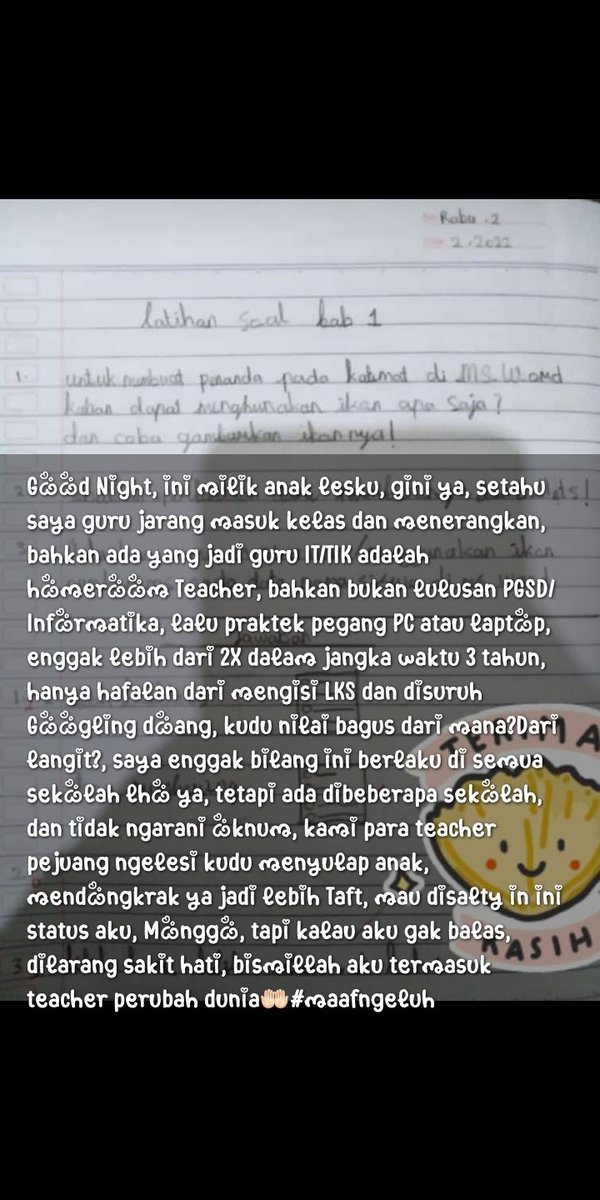 Rabu . 2
2 . 2022
latihan soal bab 1
1. untuk mumbuat penanda pada kalimat di MS. Word
kalian dapat menghunakan ikon apa saja?
dan coba gambarkan ikonnya!
Good Night, ini milik anak lesku, gini ya, setahu
saya guru jarang masuk kelas dan menerangkan,
bahkan ada yang jadi guru IT/TIK adalah
homeroom Teacher, bahkan bukan lulusan PGSD/
Informatika, lalu praktek pegang PC atau laptop,
enggak lebih dari 2X dalam jangka waktu 3 tahun,
hanya hafalan dari mengisi LKS dan disuruh
Googling doang, kudu nilai bagus dari mana?Dari
langit?, saya enggak bilang ini berlaku di semua
sekolah lho ya, tetapi ada dibeberapa sekolah,
dan tidak ngarani oknum, kami para teacher
pejuang ngelesi kudu menyulap anak,
mendongkrak ya jadi lebih Taft, mau disalty in ini
status aku, Monggo, tapi kalau aku gak balas,
dilarang sakit hati, bismillah aku termasuk
teacher perubah dunia🤲🏻#maafngeluh
TERIMA
KASIH